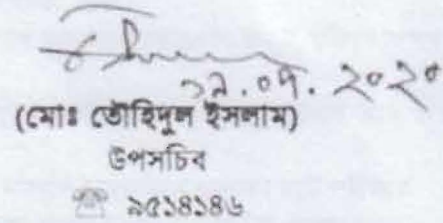 ১৯.০৭.২০২০
(মোঃ তৌহিদুল ইসলাম)
উপসচিব
☎ ৯৫১৪১৪৬